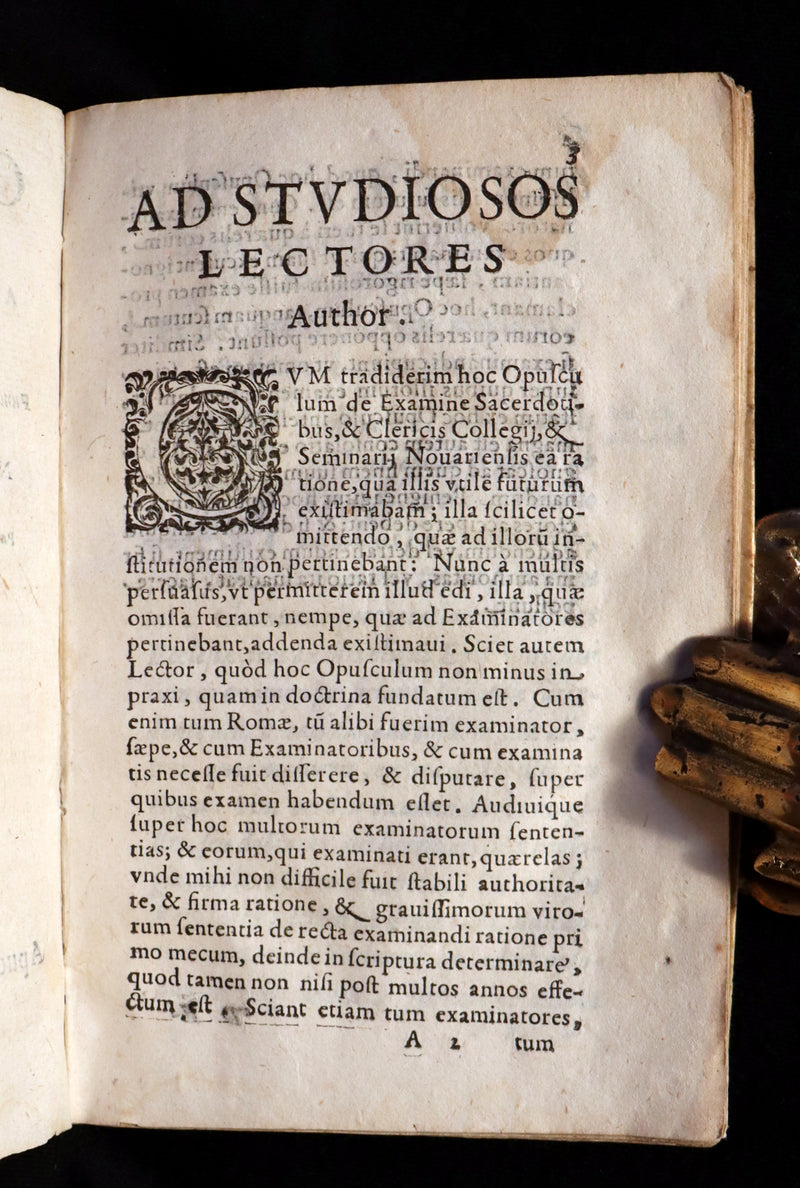 3
AD STVDIOSOS
LECTORES
Author.
CVM tradiderim hoc Opuſcu
lum de Examine Sacerdoti-
bus, & Clericis Collegij, &
Seminarij Nouarienſis ea ra
tione, qua illis vtile futurum
exiſtimabam; illa ſcilicet o-
mittendo, quæ ad illorū in-
ſtitutionem non pertinebant: Nunc à multis
perſuaſus, vt permitterem illud edi, illa, quæ
omiſſa fuerant, nempe, quæ ad Examinatores
pertinebant, addenda exiſtimaui. Sciet autem
Lector, quòd hoc Opuſculum non minus in
praxi, quam in doctrina fundatum eſt. Cum
enim tum Romæ, tū alibi fuerim examinator,
ſæpe, & cum Examinatoribus, & cum examina
tis neceſſe fuit diſſerere, & diſputare, ſuper
quibus examen habendum eſſet. Audiuique
ſuper hoc multorum examinatorum ſenten-
tias; & eorum, qui examinati erant, quærelas;
vnde mihi non difficile fuit ſtabili authorita-
te, & firma ratione, & grauiſſimorum viro-
rum ſententia de recta examinandi ratione pri
mo mecum, deinde in ſcriptura determinare,
quod tamen non niſi poſt multos annos effe-
ctum eſt. Sciant etiam tum examinatores,
A 2 tum